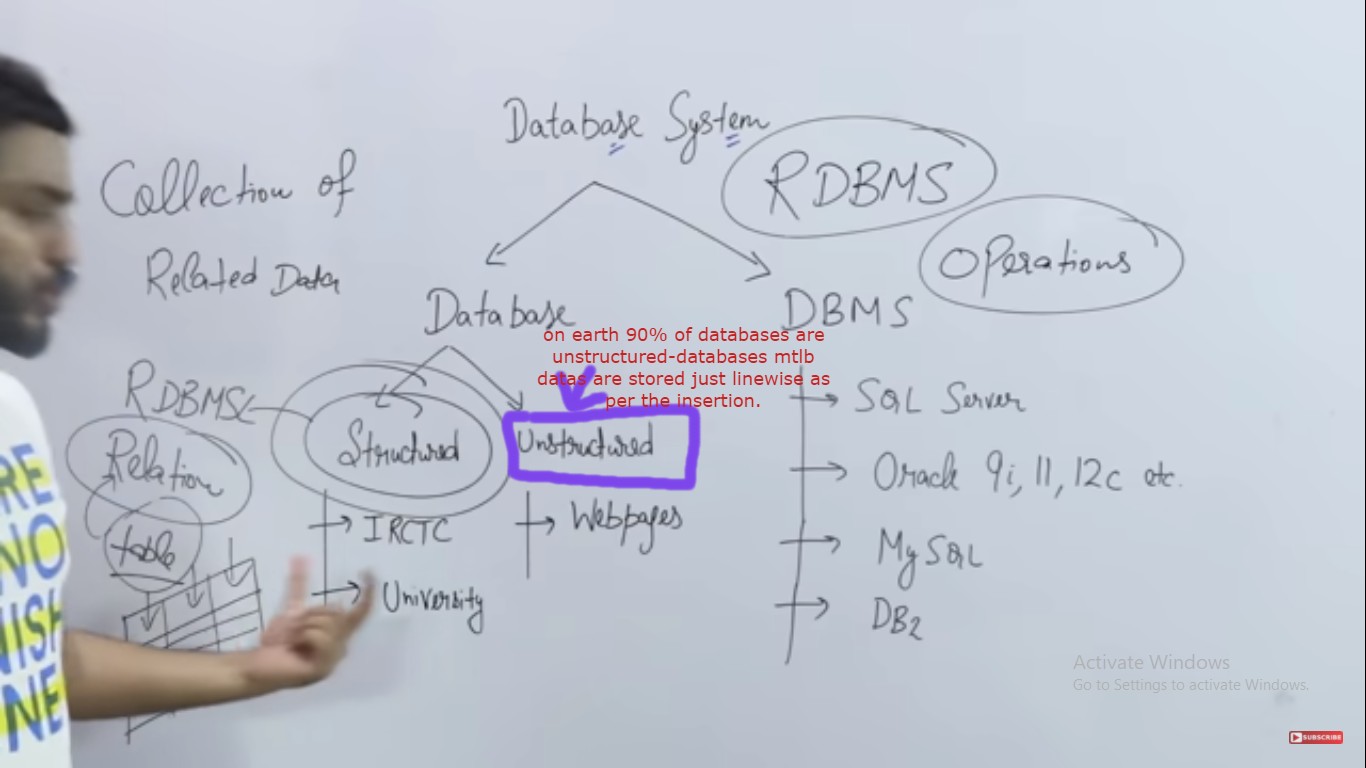 Database System
RDBMS
Collection of
Related Data
Operations
Database
DBMS
on earth 90% of databases are
unstructured-databases mtlb
datas are stored just linewise as
per the insertion.
RDBMS
Structured
Unstructured
Relation
table
IRCTC
University
Webpages
SQL Server
Oracle 9i, 11, 12c etc.
MySQL
DB2
RE
NO
NISH
NE
Activate Windows
Go to Settings to activate Windows.
SUBSCRIBE